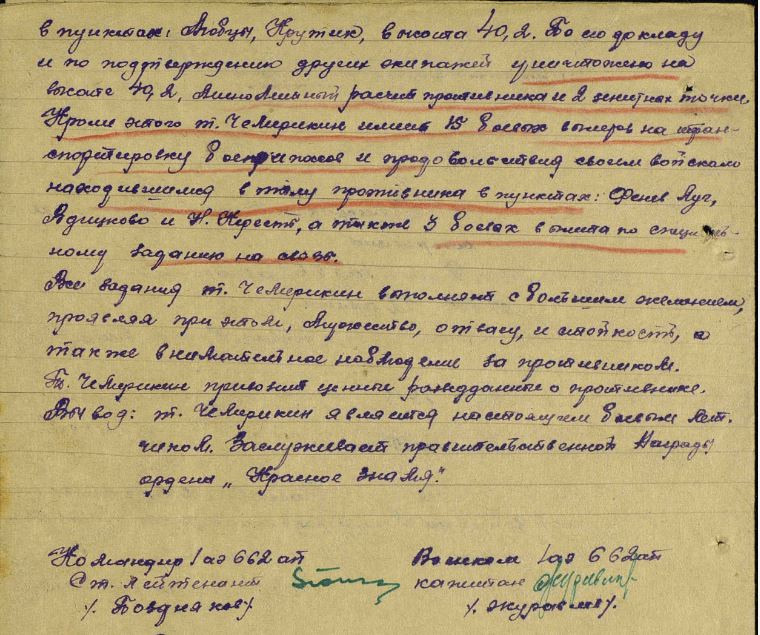 в пунктах: Любцы, Крутик, высота 40,2. По его докладу
и по подтверждению других экипажей уничтожено на
высоте 40,2, Минометный расчет противника и 2 зенитных точки.
Кроме этого т. Чемерикин имеет 15 боевых вылетов на тран-
спортировку боеприпасов и продовольствия своим войскам
находившимся в тылу противника в пунктах: Финев Луг,
Ядицково и Н. Кересть, а также 3 боевых вылета по специаль-
ному заданию на связь.
Все задания т. Чемерикин выполняет с большим желанием,
проявляя при этом, мужество, отвагу, и стойкость, а
также внимательное наблюдение за противником.
Тов. Чемерикин привозит ценные разведданные о противнике.
Вывод: т. Чемерикин является настоящим боевым лет-
чиком. Заслуживает правительственной Награды
ордена „Красное Знамя".
Командир 1 аэ 662 ап Военком 1 аэ 662 ап
Ст. лейтенант капитан
/. Поздняков/ /. Журавлев/.